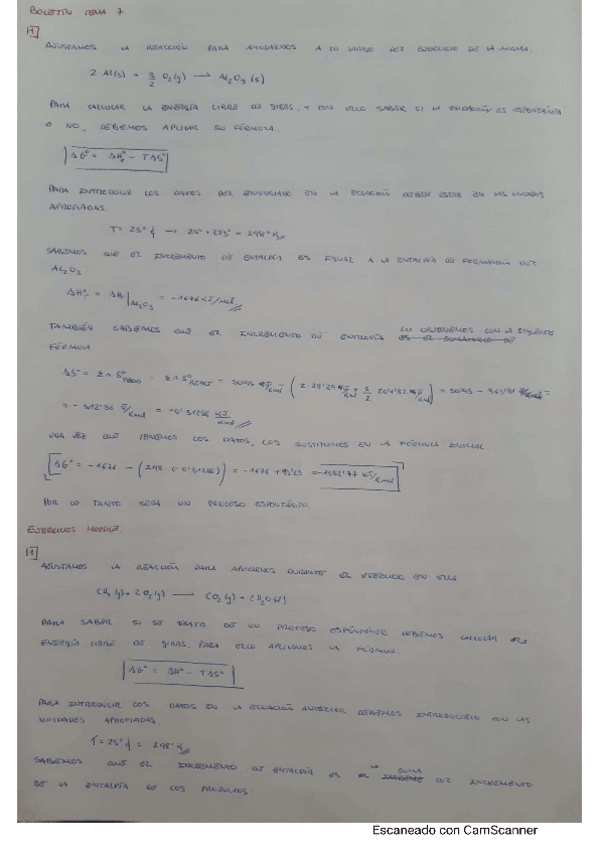 BOLETÍN TEMA 7
1
AJUSTAMOS LA REACCIÓN PARA AYUDARNOS A LO LARGO DEL EJERCICIO DE LA MISMA.
2 Al(s) + 3/2 O₂(g) → Al₂O₃(s)
PARA CALCULAR LA ENERGÍA LIBRE DE GIBBS, Y CON ELLO SABER SI LA OXIDACIÓN ES ESPONTÁNEA
O NO, DEBEMOS APLICAR SU FÓRMULA.
ΔG° = ΔH° - TΔS°
PARA INTRODUCIR LOS DATOS DEL ENUNCIADO EN LA ECUACIÓN DEBEN ESTAR EN LAS UNIDADES
APROPIADAS.
T = 25° → 25° + 273° = 298° K
SABEMOS QUE EL INCREMENTO DE ENTALPÍA ES IGUAL A LA ENTALPÍA DE FORMACIÓN DEL
Al₂O₃
= -1676 KJ/mol
TAMBIÉN SABEMOS QUE EL INCREMENTO DE ENTROPÍA LO OBTENEMOS CON LA SIGUIENTE
FÓRMULA
ΔS° =
UNA VEZ QUE TENEMOS LOS DATOS, LOS SUSTITUIMOS EN LA FÓRMULA INICIAL.
ΔG° = -1676 - (298 ·
POR LO TANTO SERÁ UN PROCESO ESPONTÁNEO.
EJERCICIOS MOODLE.
1
AJUSTAMOS LA REACCIÓN PARA APOYARNOS DURANTE EL EJERCICIO EN ELLA
CH₄(g) + 2O₂(g) → CO₂(g) + 2H₂O(l)
PARA SABER SI SE TRATA DE UN PROCESO ESPONTÁNEO DEBEMOS CALCULAR LA
ENERGÍA LIBRE DE GIBBS. PARA ELLO APLICAMOS LA FÓRMULA:
ΔG° = ΔH° - TΔS°
PARA INTRODUCIR LOS DATOS EN LA ECUACIÓN ANTERIOR DEBEMOS INTRODUCIRLO CON LAS
UNIDADES APROPIADAS.
T = 25° = 298° K
SABEMOS QUE EL INCREMENTO DE ENTALPÍA ES LA SUMA DEL INCREMENTO
DE LA ENTALPÍA DE LOS PRODUCTOS.
Escaneado con CamScanner